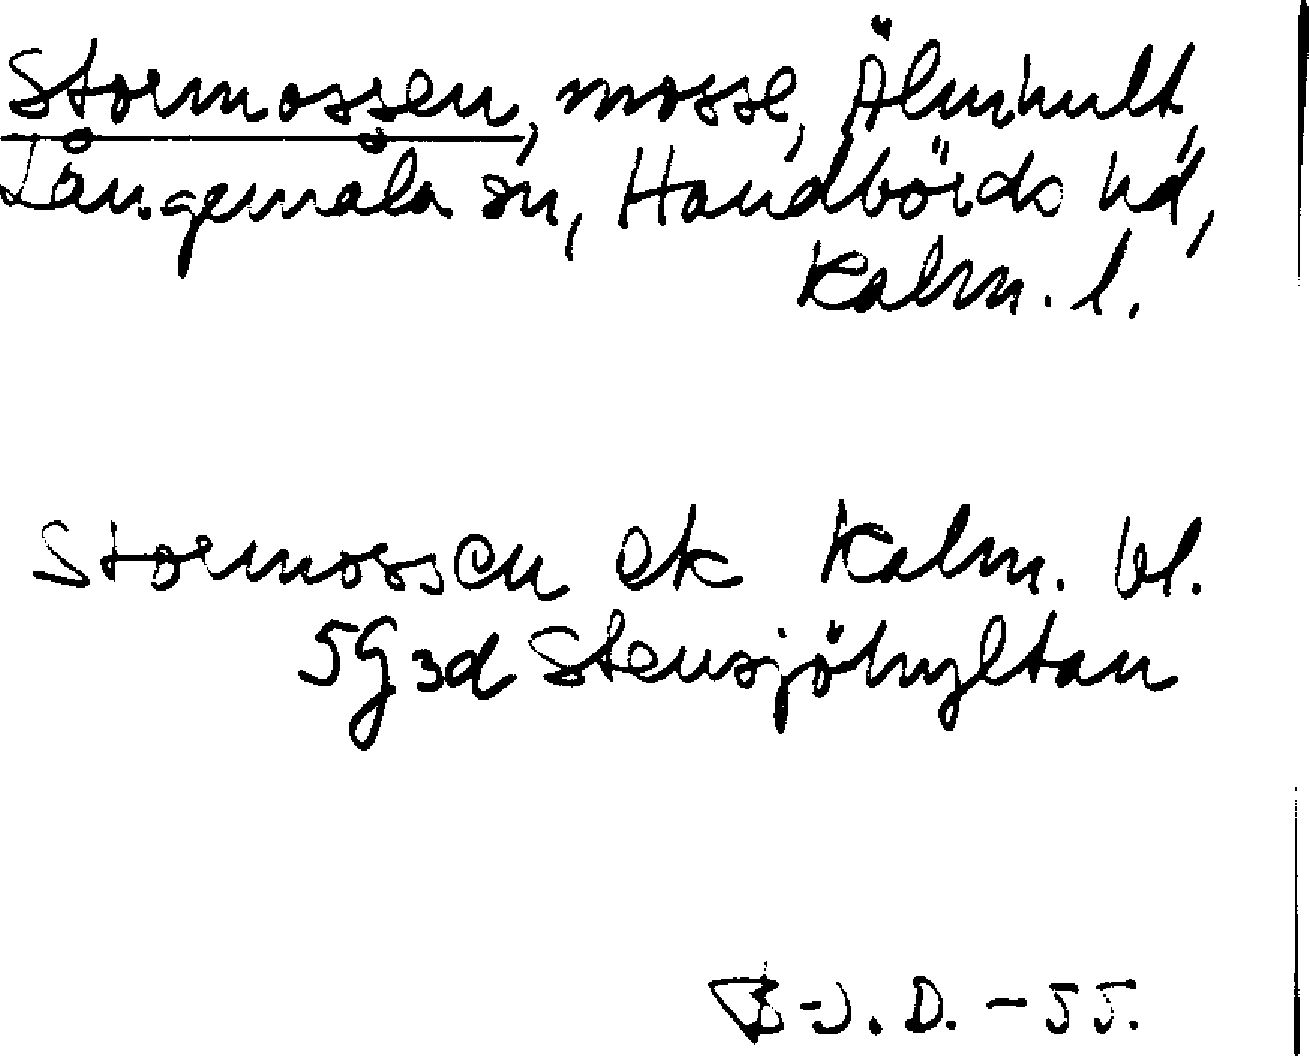 Stormossen, mosse, Älmhult,
Långemåla sn, Handbörds hd,
Kalm. l.
Stormossen ek Kalm. bl.
5G3d Stensjöhyltan
B-J. D. -55.